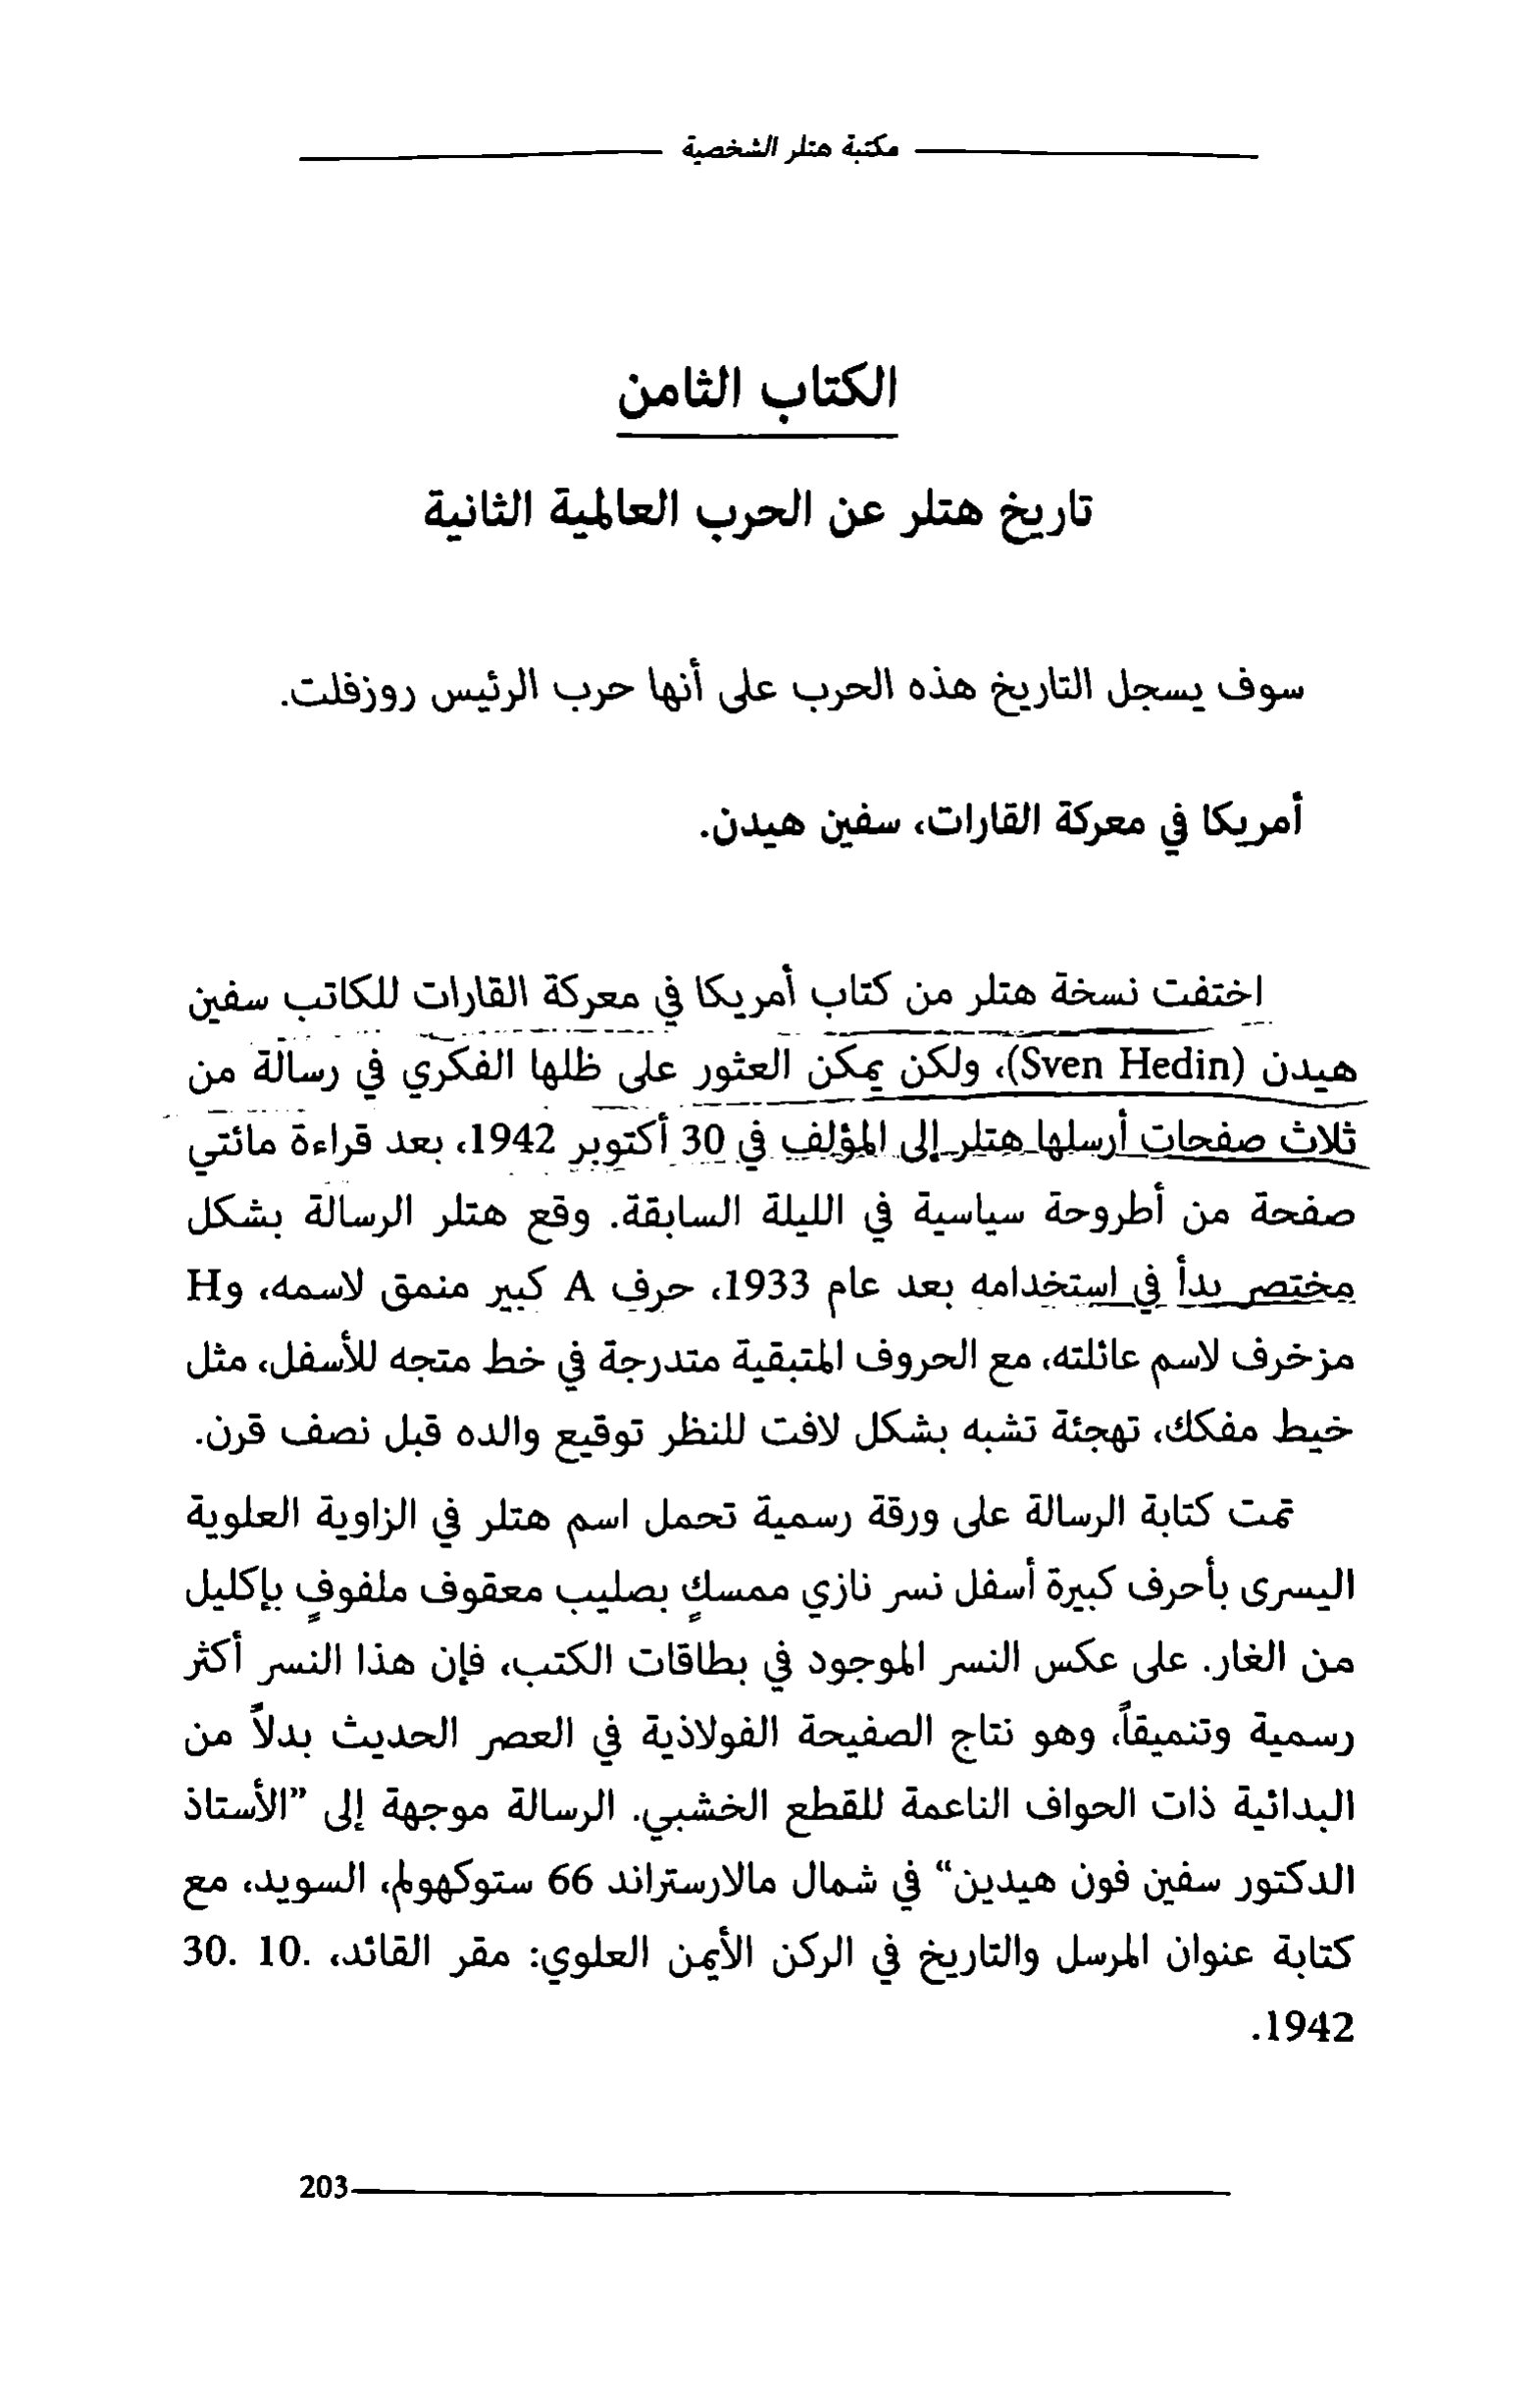 مكتبة هتلر الشخصية
الكتاب الثامن
تاريخ هتلر عن الحرب العالمية الثانية
سوف يسجل التاريخ هذه الحرب على أنها حرب الرئيس روزفلت.
أمريكا في معركة القارات، سفين هيدن.
اختفت نسخة هتلر من كتاب أمريكا في معركة القارات للكاتب سفين
هيدن (Sven Hedin)، ولكن يمكن العثور على ظلها الفكري في رسالة من
ثلاث صفحات أرسلها هتلر إلى المؤلف في 30 أكتوبر 1942، بعد قراءة مائتي
صفحة من أطروحة سياسية في الليلة السابقة. وقع هتلر الرسالة بشكل
مختصر بدأ في استخدامه بعد عام 1933، حرف A كبير منمق لاسمه، وH
مزخرف لاسم عائلته، مع الحروف المتبقية متدرجة في خط متجه للأسفل، مثل
خيط مفكك، تهجئة تشبه بشكل لافت للنظر توقيع والده قبل نصف قرن.
تمت كتابة الرسالة على ورقة رسمية تحمل اسم هتلر في الزاوية العلوية
اليسرى بأحرف كبيرة أسفل نسر نازي ممسكٍ بصليب معقوف ملفوفٍ بإكليل
من الغار. على عكس النسر الموجود في بطاقات الكتب، فإن هذا النسر أكثر
رسمية وتنميقاً، وهو نتاج الصفيحة الفولاذية في العصر الحديث بدلاً من
البدائية ذات الحواف الناعمة للقطع الخشبي. الرسالة موجهة إلى "الأستاذ
الدكتور سفين فون هيدين" في شمال مالارستراند 66 ستوكهولم، السويد، مع
كتابة عنوان المرسل والتاريخ في الركن الأيمن العلوي: مقر القائد، .10 .30
1942.
203